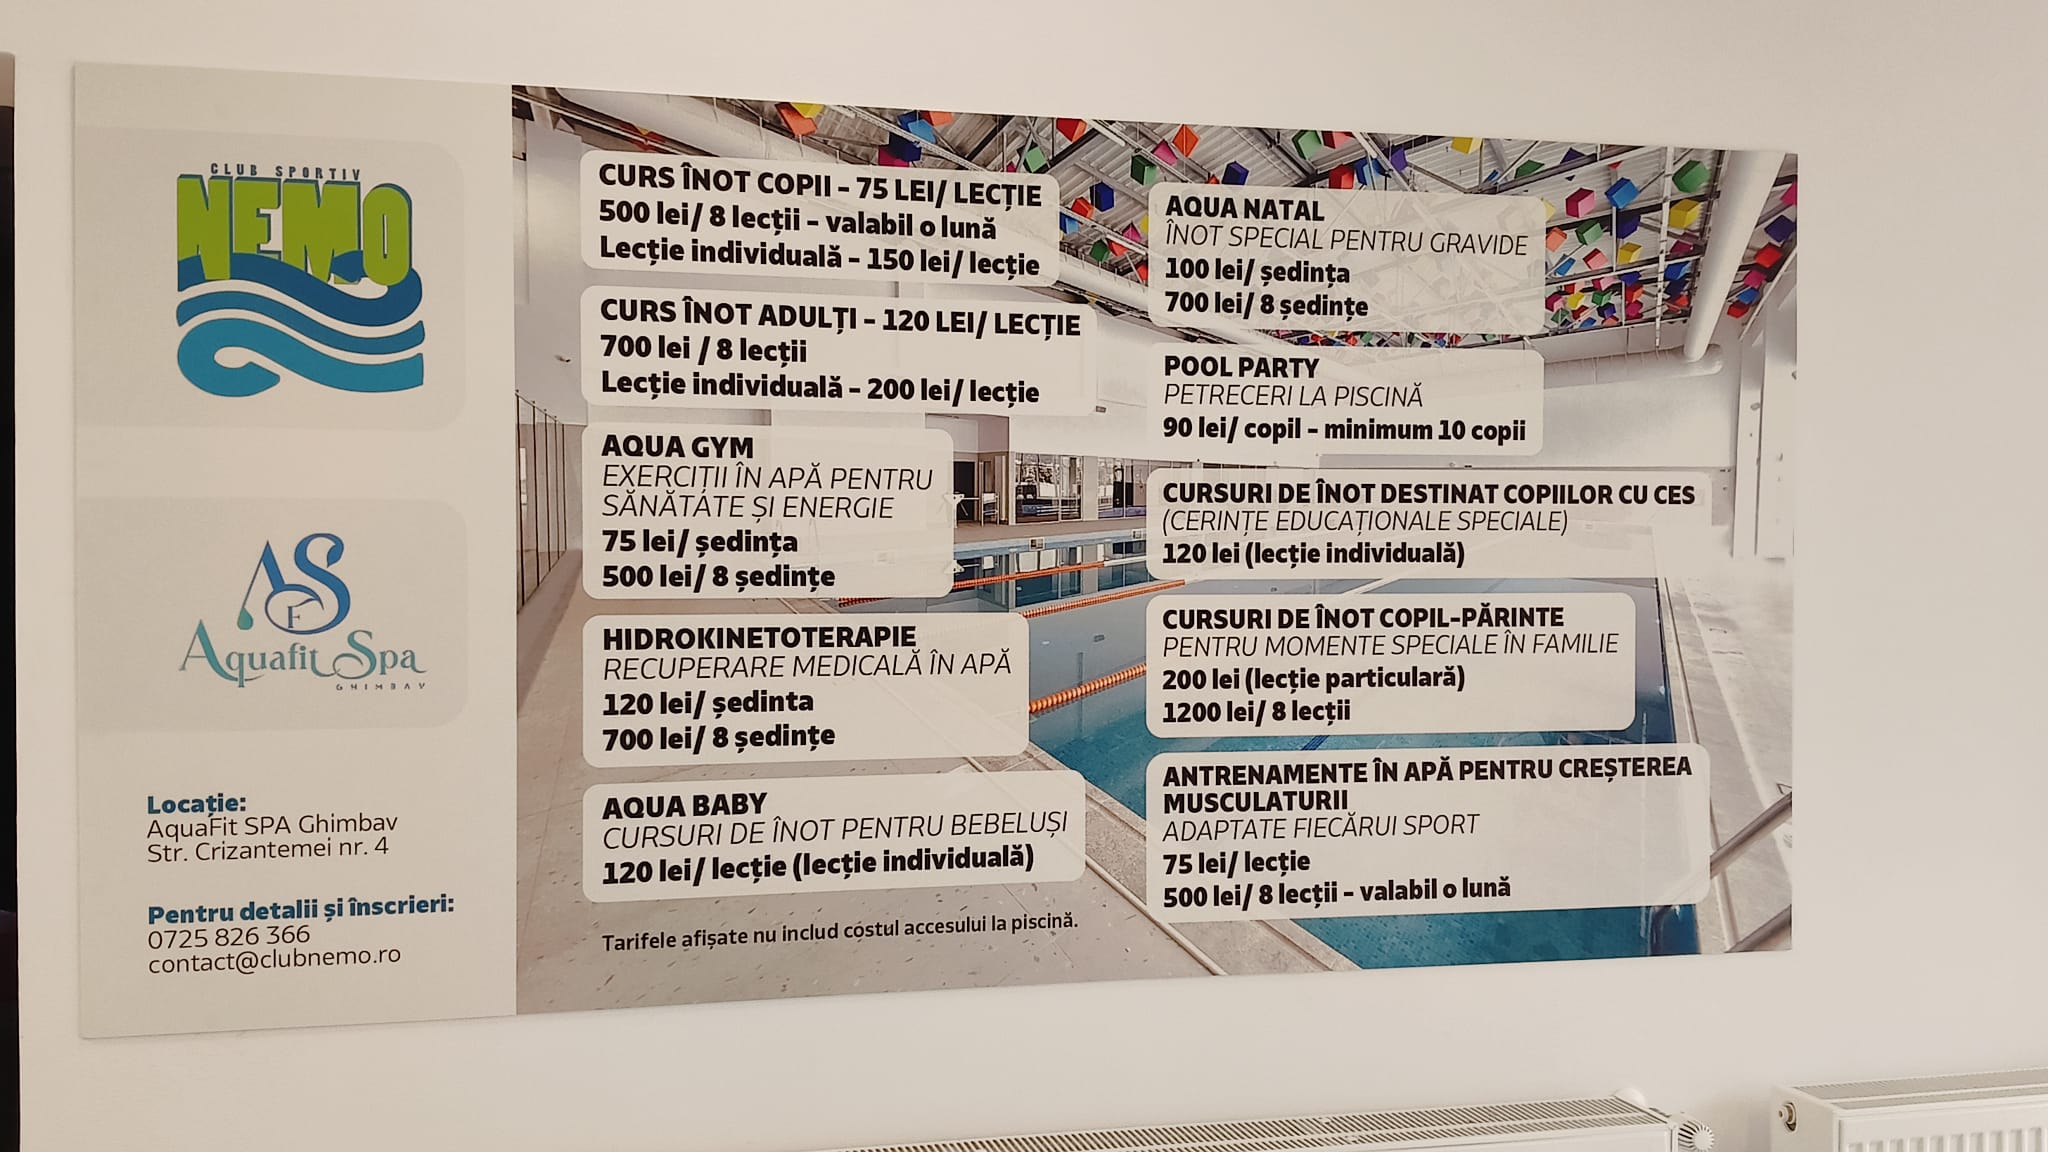 CLUB SPORTIV
NEMO
ASF
Aquafit Spa
GHIMBAV
Locație:
AquaFit SPA Ghimbav
Str. Crizantemei nr. 4
Pentru detalii și înscrieri:
0725 826 366
contact@clubnemo.ro
CURS ÎNOT COPII - 75 LEI/ LECȚIE
500 lei/ 8 lecții - valabil o lună
Lecție individuală - 150 lei/ lecție
CURS ÎNOT ADULȚI - 120 LEI/ LECȚIE
700 lei / 8 lecții
Lecție individuală - 200 lei/ lecție
AQUA GYM
EXERCIȚII ÎN APĂ PENTRU
SĂNĂTATE ȘI ENERGIE
75 lei/ ședința
500 lei/ 8 ședințe
HIDROKINETOTERAPIE
RECUPERARE MEDICALĂ ÎN APĂ
120 lei/ ședinta
700 lei/ 8 ședințe
AQUA BABY
CURSURI DE ÎNOT PENTRU BEBELUȘI
120 lei/ lecție (lecție individuală)
Tarifele afișate nu includ costul accesului la piscină.
AQUA NATAL
ÎNOT SPECIAL PENTRU GRAVIDE
100 lei/ ședința
700 lei/ 8 ședințe
POOL PARTY
PETRECERI LA PISCINĂ
90 lei/ copil - minimum 10 copii
CURSURI DE ÎNOT DESTINAT COPIILOR CU CES
(CERINȚE EDUCAȚIONALE SPECIALE)
120 lei (lecție individuală)
CURSURI DE ÎNOT COPIL-PĂRINTE
PENTRU MOMENTE SPECIALE ÎN FAMILIE
200 lei (lecție particulară)
1200 lei/ 8 lecții
ANTRENAMENTE ÎN APĂ PENTRU CREȘTEREA
MUSCULATURII
ADAPTATE FIECĂRUI SPORT
75 lei/ lecție
500 lei/ 8 lecții - valabil o lună